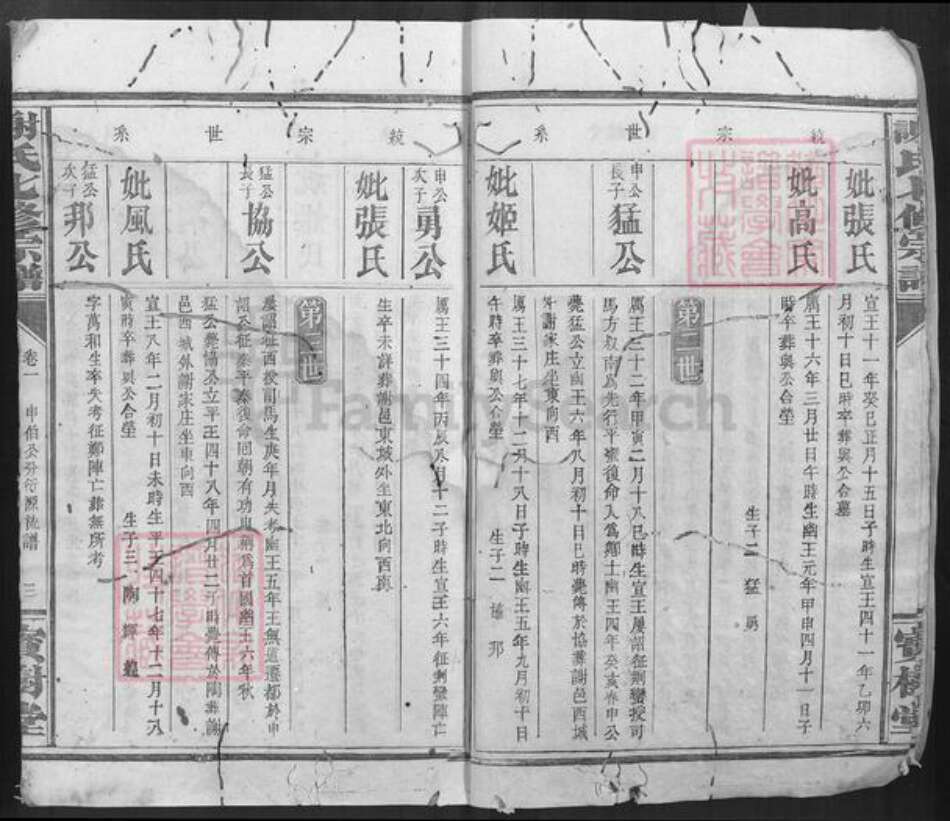 統宗世系
妣張氏
宣王十一年癸巳正月十五日子時生宣王四十一年乙卯六
月初十日巳時卒葬與公合墓
妣高氏
生子二 猛 勇
厲王十六年三月廿日午時生幽王元年甲申四月十一日子
時卒葬與公合塋
第二世
申公長子
猛公
厲王三十二年甲寅二月十八巳時生宣王屢詔征荊蠻授司
馬方叔南為先行平蠻復命入為卿士幽王四年癸亥春申公
薨猛公立幽王六年八月初十日巳時薨傳於協葬謝邑西城
外謝家庄坐東向酉
妣姬氏
厲王三十七年十二月十八日子時生幽王五年九月初十日
午時卒葬與公合塋 生子二 協 邦
統宗世系
申公次子
勇公
厲王三十四年丙辰八月十二子時生宣王六年征荊蠻陣亡
妣張氏
生卒未詳葬謝邑東城外坐東北向西
第三世
猛公長子
協公
屢詔征西授司馬生庚年月失考幽王五年王無道遷都於申
詔公征秦平秦復命回朝有功申朝為首國幽王六年秋
猛公薨協公立平王四十八年四月廿二子時薨傳於陶葬謝
邑西城外謝家庄坐東向酉
妣風氏
宣王八年二月初十日未時生平王四十七年十二月十八
寅時卒葬與公合塋 生子三 陶
猛公次子
邦公
字萬和生卒失考征鄭陣亡葬無所考
謝氏七修宗譜
卷一
申伯公分衍源流譜
三
寶樹堂
FamilySearch